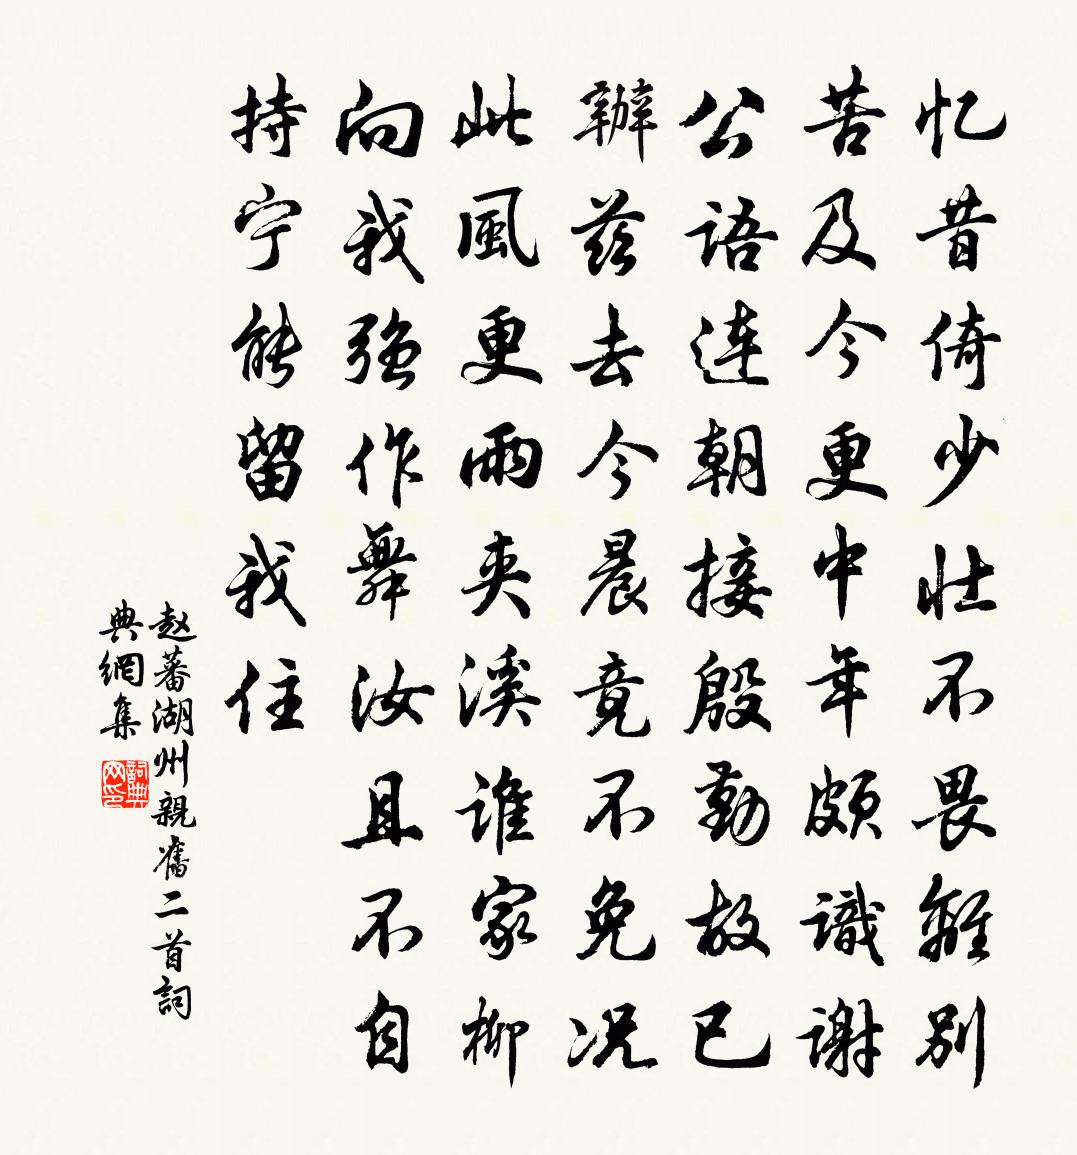 忆昔倚少壮不畏離别
苦及今更中年頗識謝
公語連朝接殷勤故已
辦茲去今晨竟不免况
此風更雨夾溪谁家柳
向我强作舞汝且不自
持宁能留我住
赵蕃湖州親舊二首詞
典網集
詞典
网印